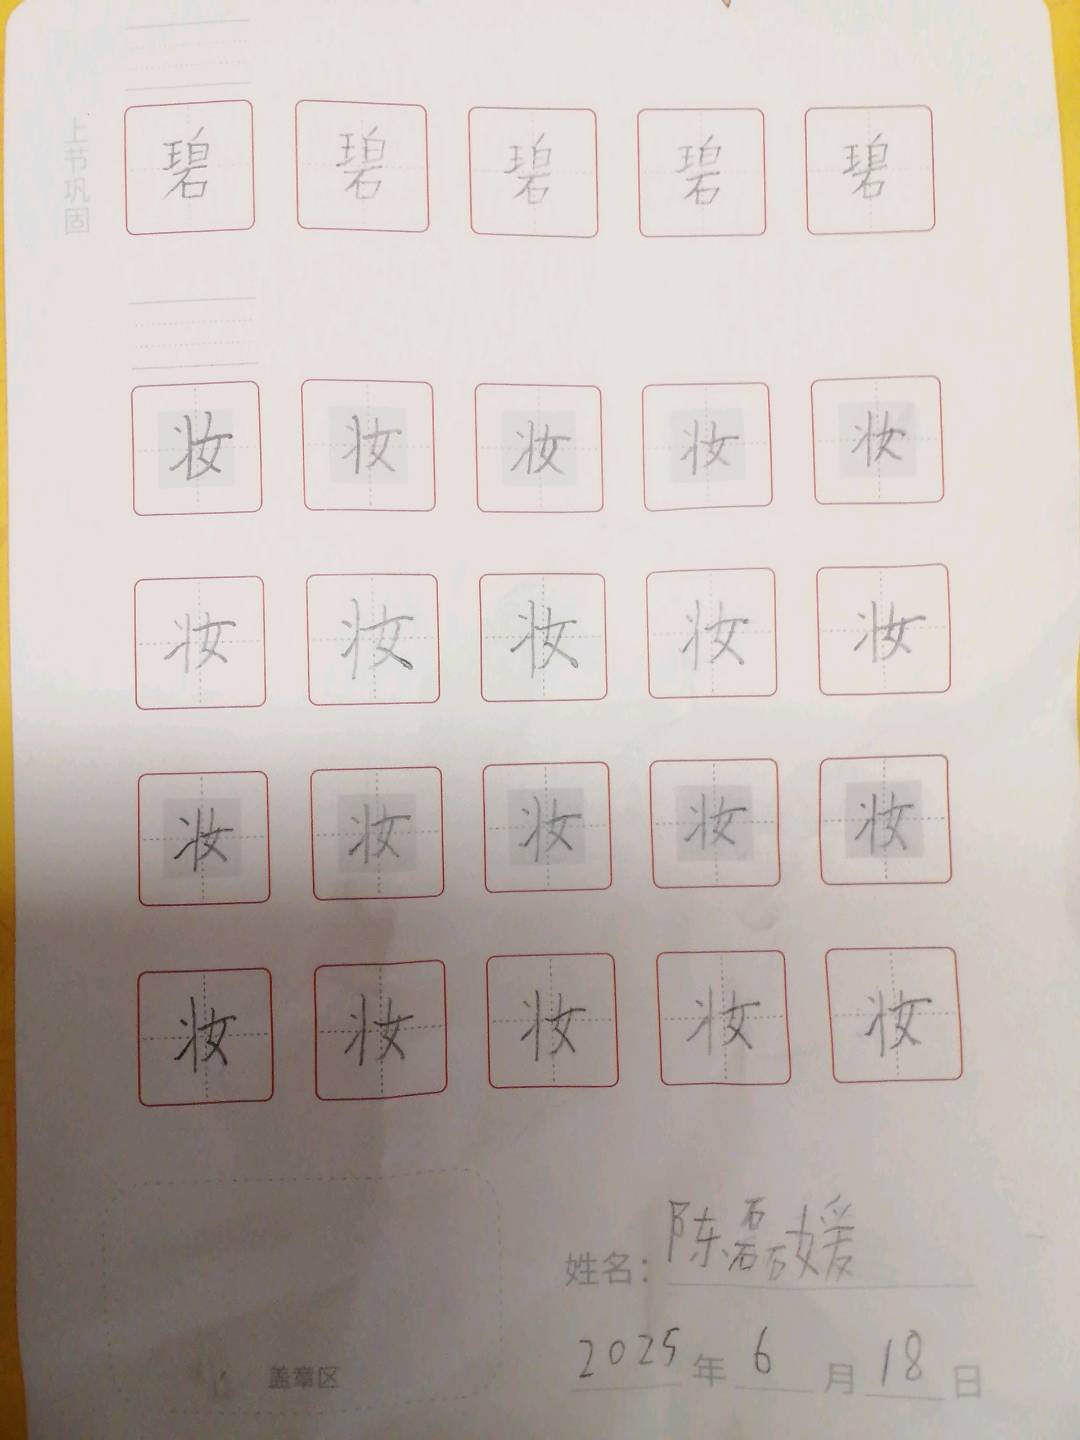 上节巩固
碧 碧 碧 碧 碧
妆 妆 妆 妆 妆
妆 妆 妆 妆 妆
妆 妆 妆 妆 妆
妆 妆 妆 妆 妆
姓名：陈磊媛
盖章区
2025年6月18日